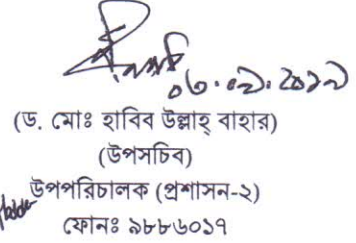 (ড. মোঃ হাবিব উল্লাহ্ বাহার)
(উপসচিব)
উপপরিচালক (প্রশাসন-২)
ফোনঃ ৯৮৮৬০১৭